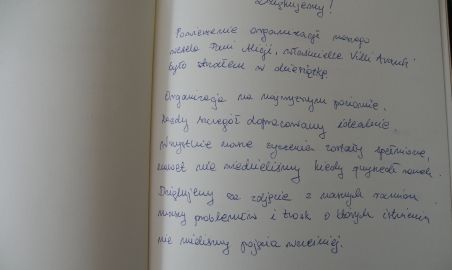 Dziękujemy!
Powierzenie organizacji naszego
wesela Pani Alicji, właścicielce Villi Avanti
było strzałem w dziesiątkę.
Organizacja na najwyższym poziomie.
Każdy szczegół dopracowany idealnie.
Wszystkie nasze życzenia zostały spełnione,
nawet nie wiedzieliśmy kiedy
Dziękujemy za zdjęcie z naszych ramion
masy problemów i trosk o których istnieniu
nie mieliśmy pojęcia wcześniej.